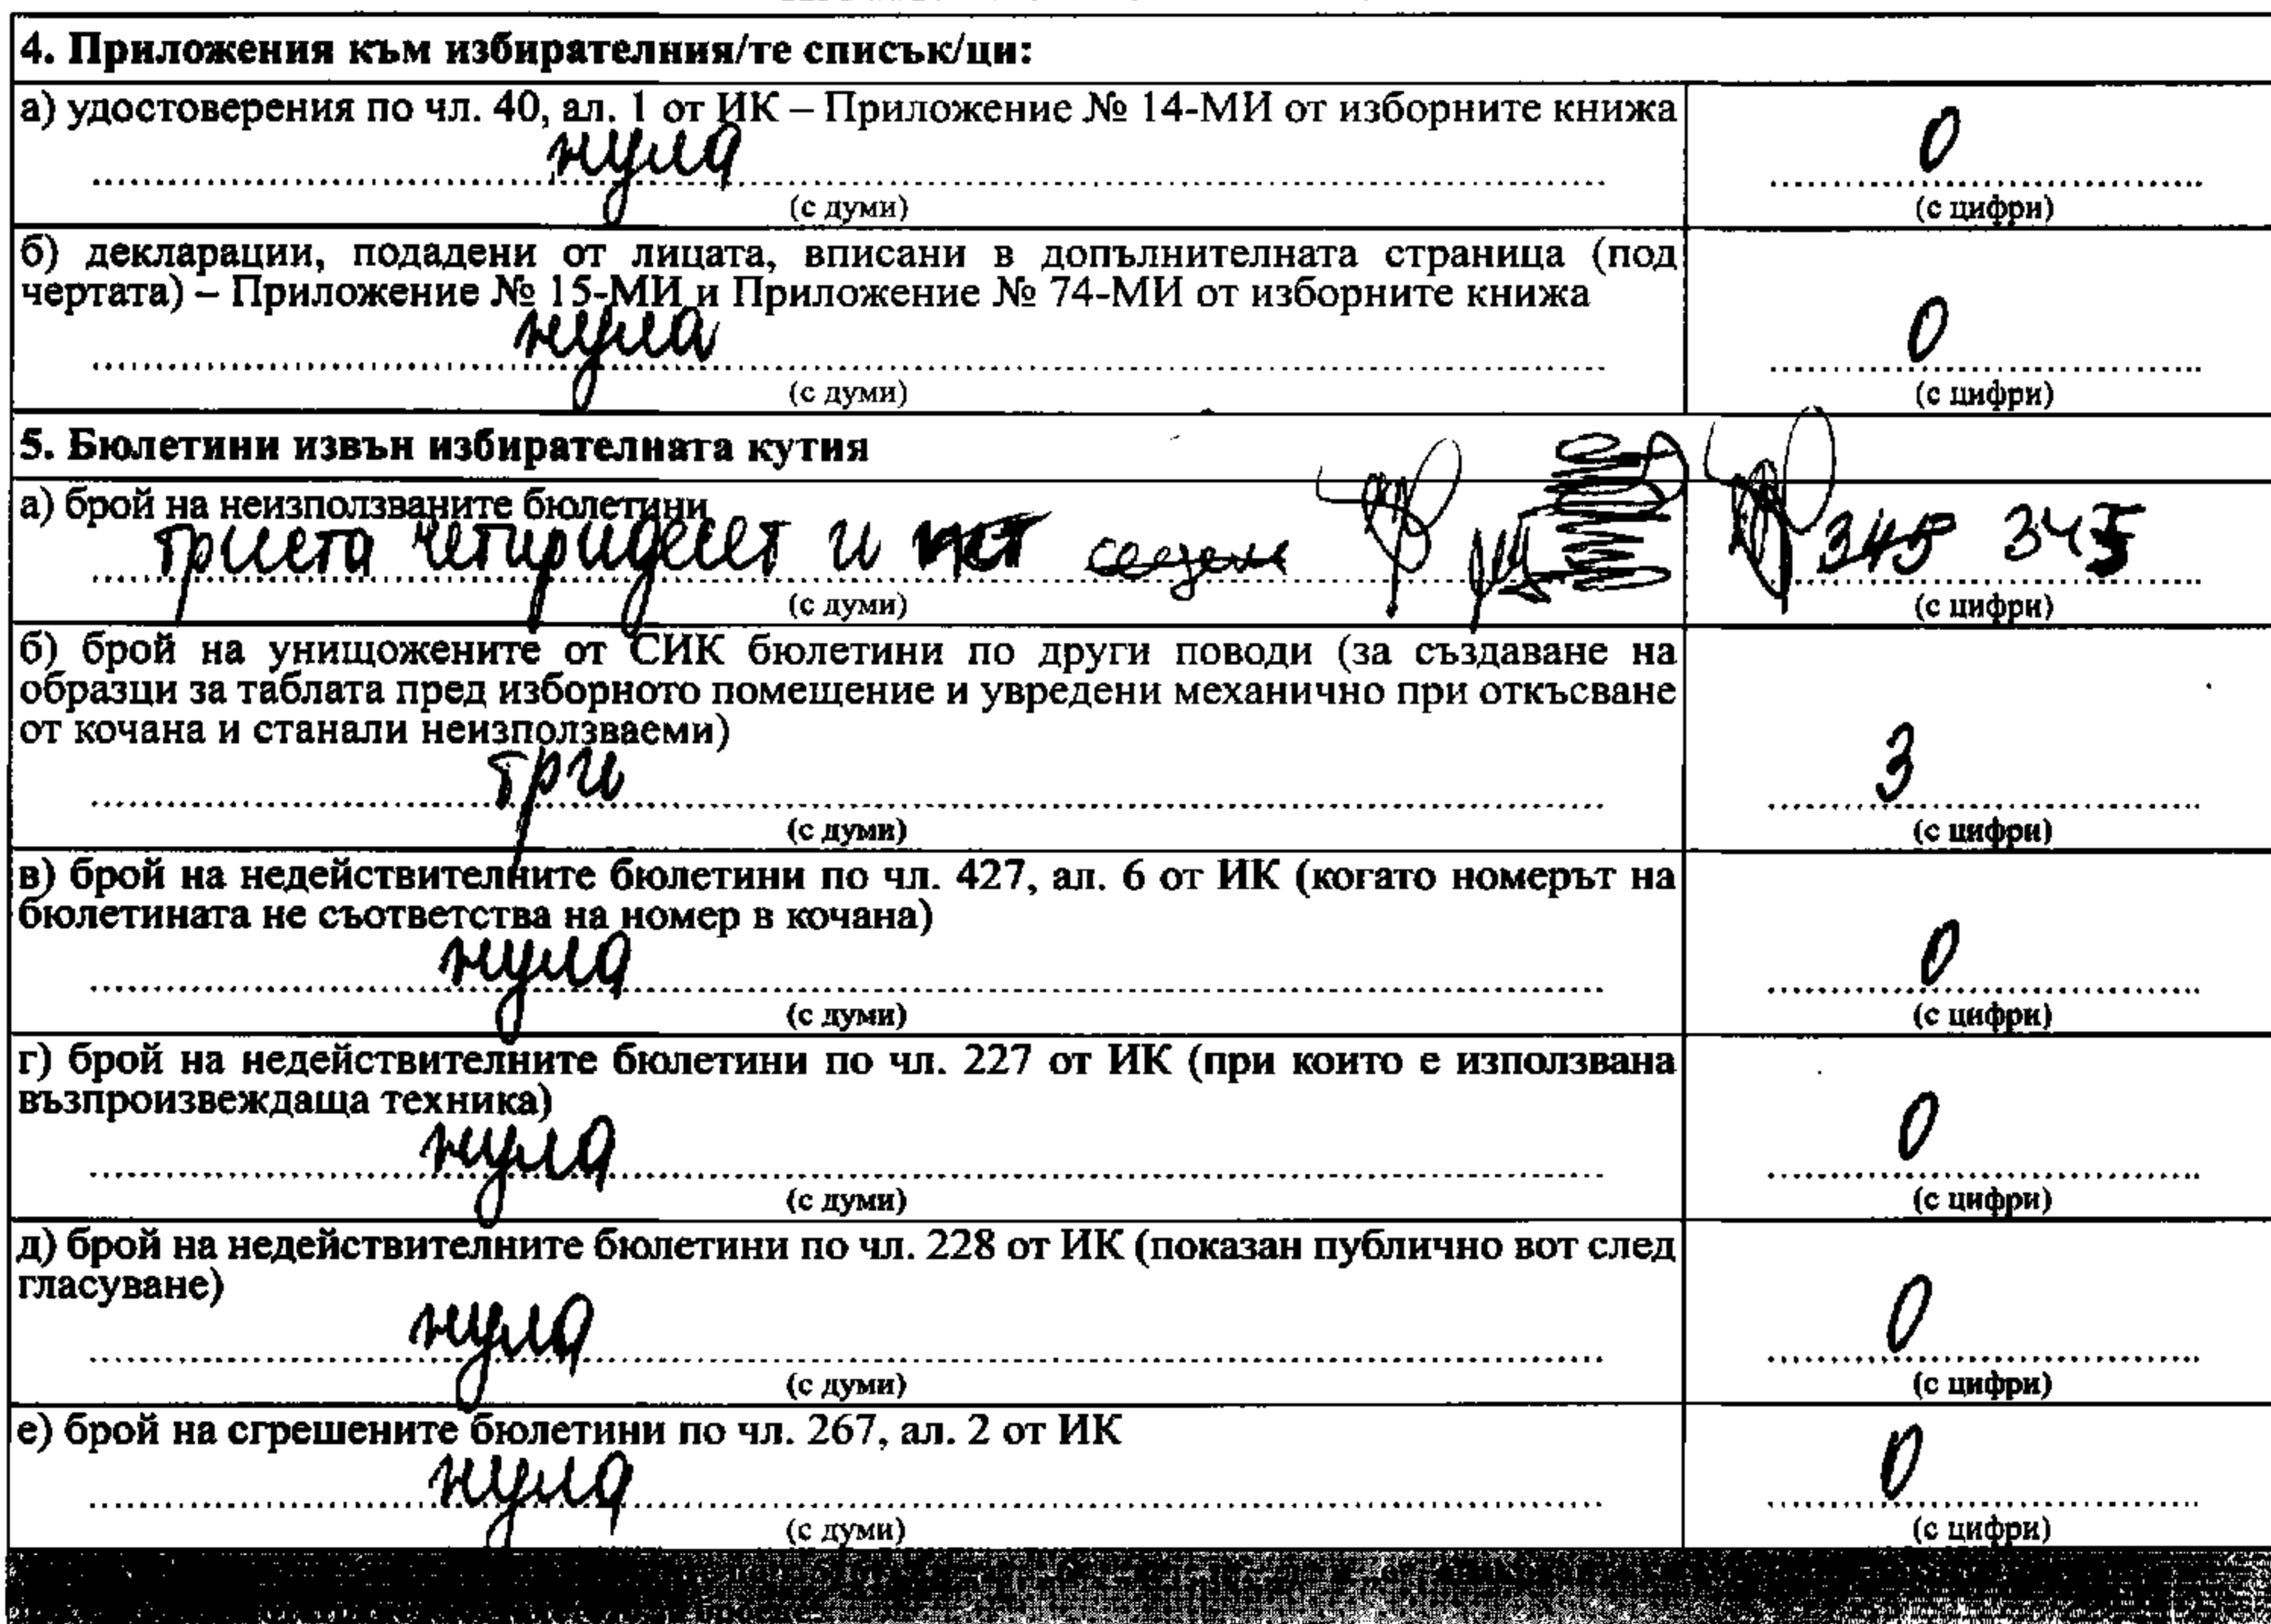 4. Приложения към избирателния/те списък/ци:
а) удостоверения по чл. 40, ал. 1 от ИК – Приложение № 14-МИ от изборните книжа
нула 0
(с думи) (с цифри)
б) декларации, подадени от лицата, вписани в допълнителната страница (под
чертата) – Приложение № 15-МИ и Приложение № 74-МИ от изборните книжа
нула 0
(с думи) (с цифри)
5. Бюлетини извън избирателната кутия
а) брой на неизползваните бюлетини
триста четиридесет и 345 345
(с думи) (с цифри)
б) брой на унищожените от СИК бюлетини по други поводи (за създаване на
образци за таблата пред изборното помещение и увредени механично при откъсване
от кочана и станали неизползваеми)
три 3
(с думи) (с цифри)
в) брой на недействителните бюлетини по чл. 427, ал. 6 от ИК (когато номерът на
бюлетината не съответства на номер в кочана)
нула 0
(с думи) (с цифри)
г) брой на недействителните бюлетини по чл. 227 от ИК (при които е използвана
възпроизвеждаща техника)
нула 0
(с думи) (с цифри)
д) брой на недействителните бюлетини по чл. 228 от ИК (показан публично вот след
гласуване)
нула 0
(с думи) (с цифри)
е) брой на сгрешените бюлетини по чл. 267, ал. 2 от ИК
нула 0
(с думи) (с цифри)